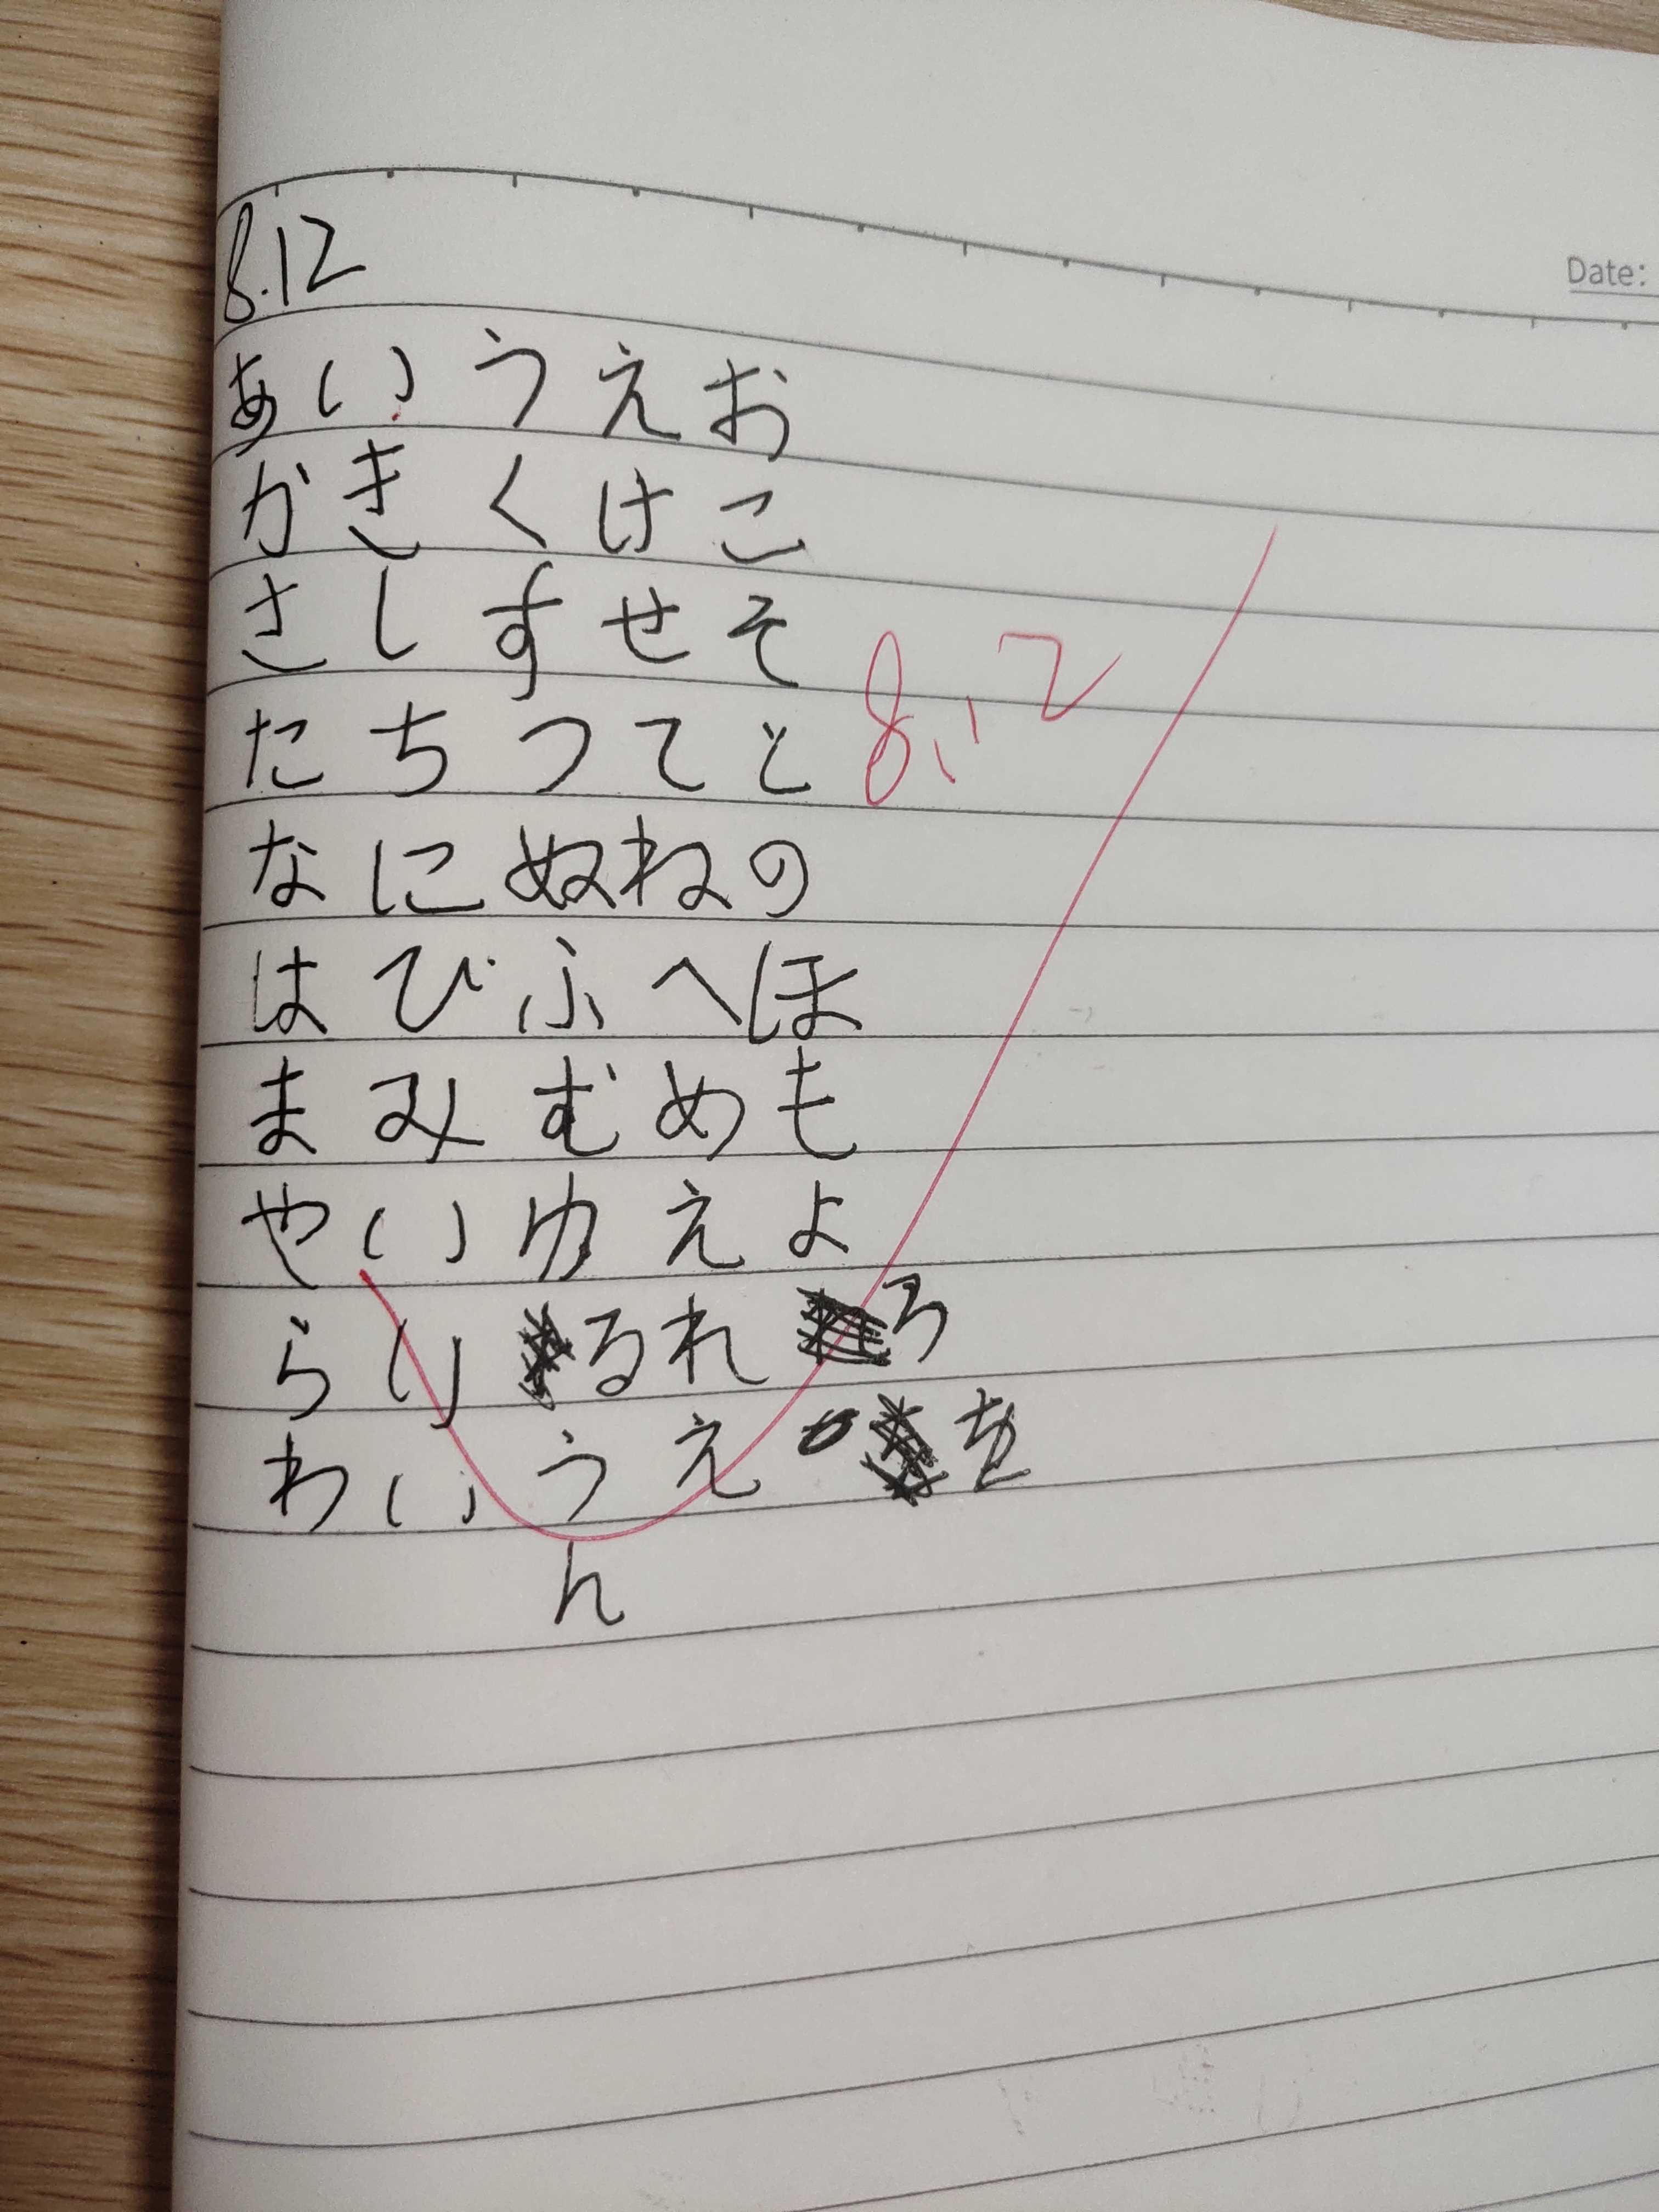 Date:
8.12
あいうえお
かきくけこ
さしすせそ
たちつてと 8.12
なにぬねの
はひふへほ
まみむめも
やいゆえよ
らりるれろ
わいうえを
ん